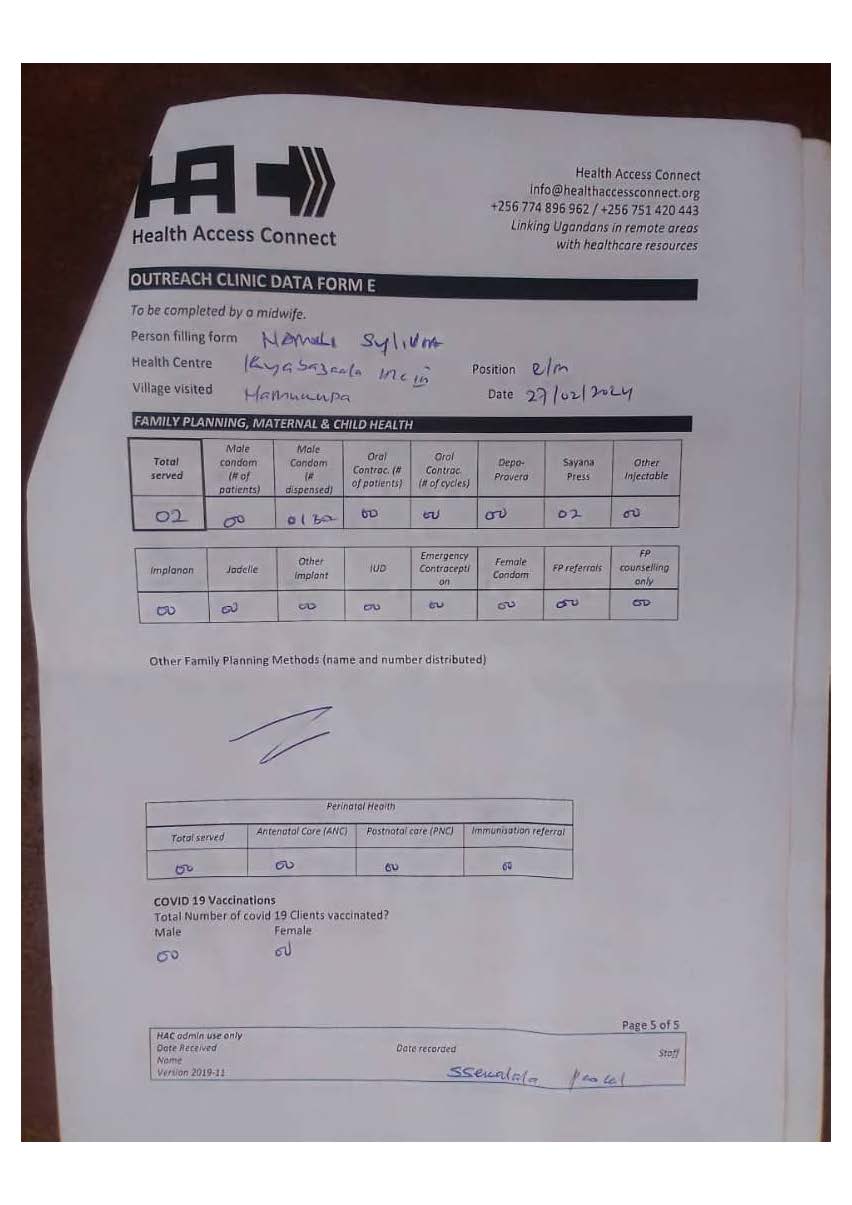 HA
Health Access Connect
Health Access Connect
info@healthaccessconnect.org
+256 774 896 962 / +256 751 420 443
Linking Ugandans in remote areas
with healthcare resources
OUTREACH CLINIC DATA FORM E
To be completed by a midwife.
Person filling form
Health Centre
Position e/m
Village visited
Date 27/02/2024
FAMILY PLANNING, MATERNAL & CHILD HEALTH
Total served | Male condom (# of patients) | Male Condom (# dispensed) | Oral Contrac. (# of patients) | Oral Contrac. (# of cycles) | Depo-Provera | Sayana Press | Other Injectable
02 | 00 | | 00 | 00 | 00 | 02 | 00
Implanon | Jadelle | Other Implant | IUD | Emergency Contracepti on | Female Condom | FP referrals | FP counselling only
00 | 00 | 00 | 00 | 00 | 00 | 00 | 00
Other Family Planning Methods (name and number distributed)
Perinatal Health
Total served | Antenatal Care (ANC) | Postnatal care (PNC) | Immunisation referral
00 | 00 | 00 | 00
COVID 19 Vaccinations
Total Number of covid 19 Clients vaccinated?
Male Female
00 00
Page 5 of 5
HAC admin use only
Date Received Date recorded Staff
Name
Version 2019-11